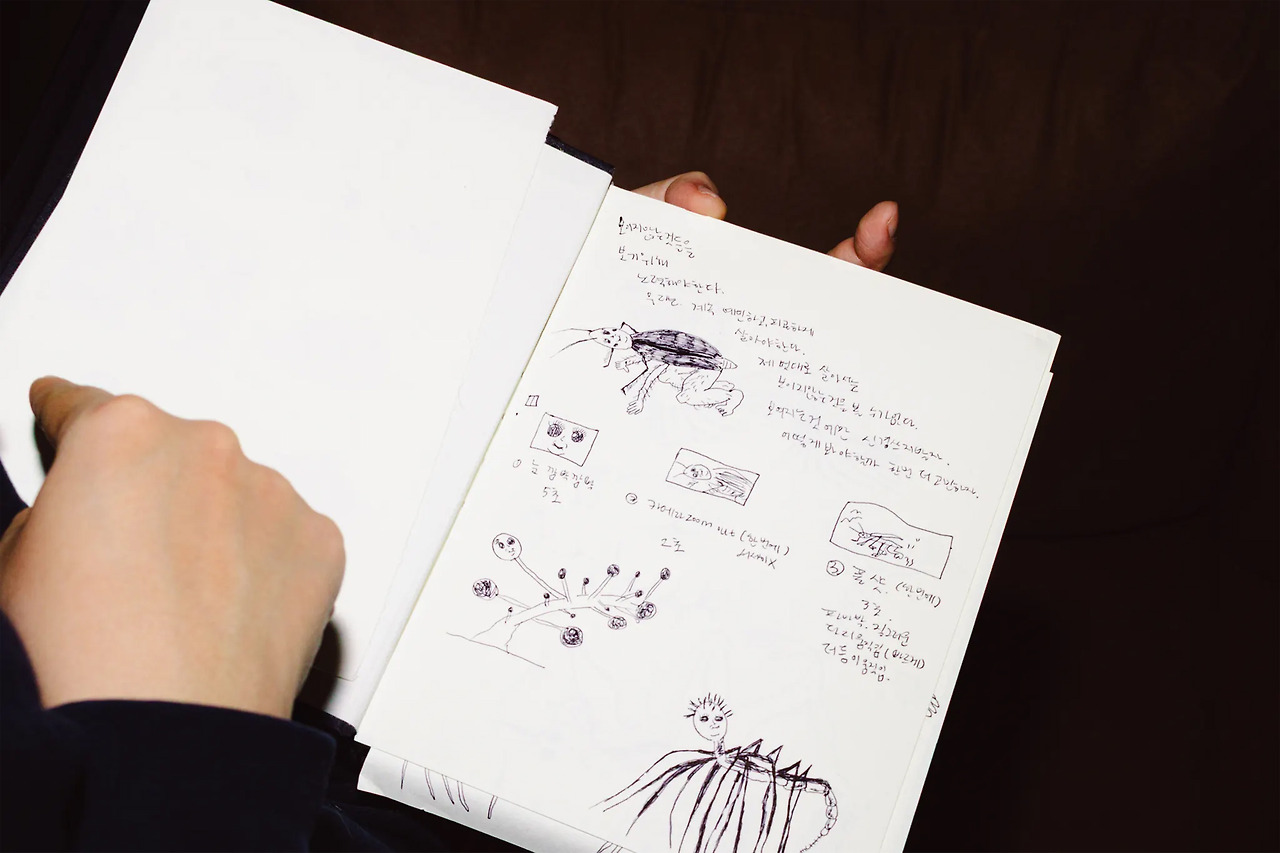 보이지않는것들을
보기위해
노력해야한다.
계속 예민하고, 피곤하게
살아야한다.
제 멋대로 살아서는
보이지않는것을 볼 수가없다.
보여지는것에만 신경쓰지말자.
어떻게 봐야할까 한번 더 고민하자.
1
① 눈 깜박깜박
5초
② 카메라 zoom out (한번에)
2초
③ 풀 샷. (한번에)
3초.
다리움직임 (빠르게)
더듬이움직임.